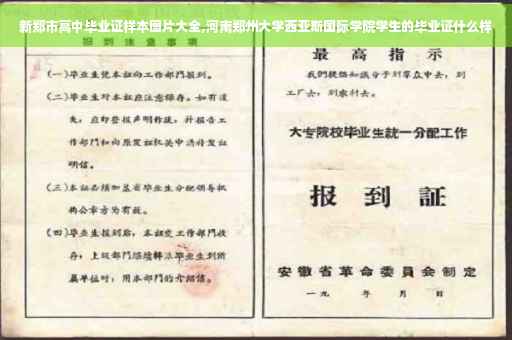 新郑市高中毕业证样本图片大全,河南郑州大学西亚斯国际学院学生的毕业证什么样
报到注意事项
(一)毕业生凭本证向工作部門报到。
(二)毕业生对本証应注意保存。如有遗
失,应即登报声明作废,并报告工
作部門和向原发証机关申請补发証
明信。
(三)本証必须加盖省毕业生分配领导机
构公章方为有效。
(四)毕业生报到后,本証交工作部門收
存;上级部門
属单位时,用本部門的介紹信。
最高指示
我們提倡知识分子到羣众中去,到
工厂去,到农村去。
大专院校毕业生統一分配工作
报到証
安徽省革命委員会制定
一九 年 月 日